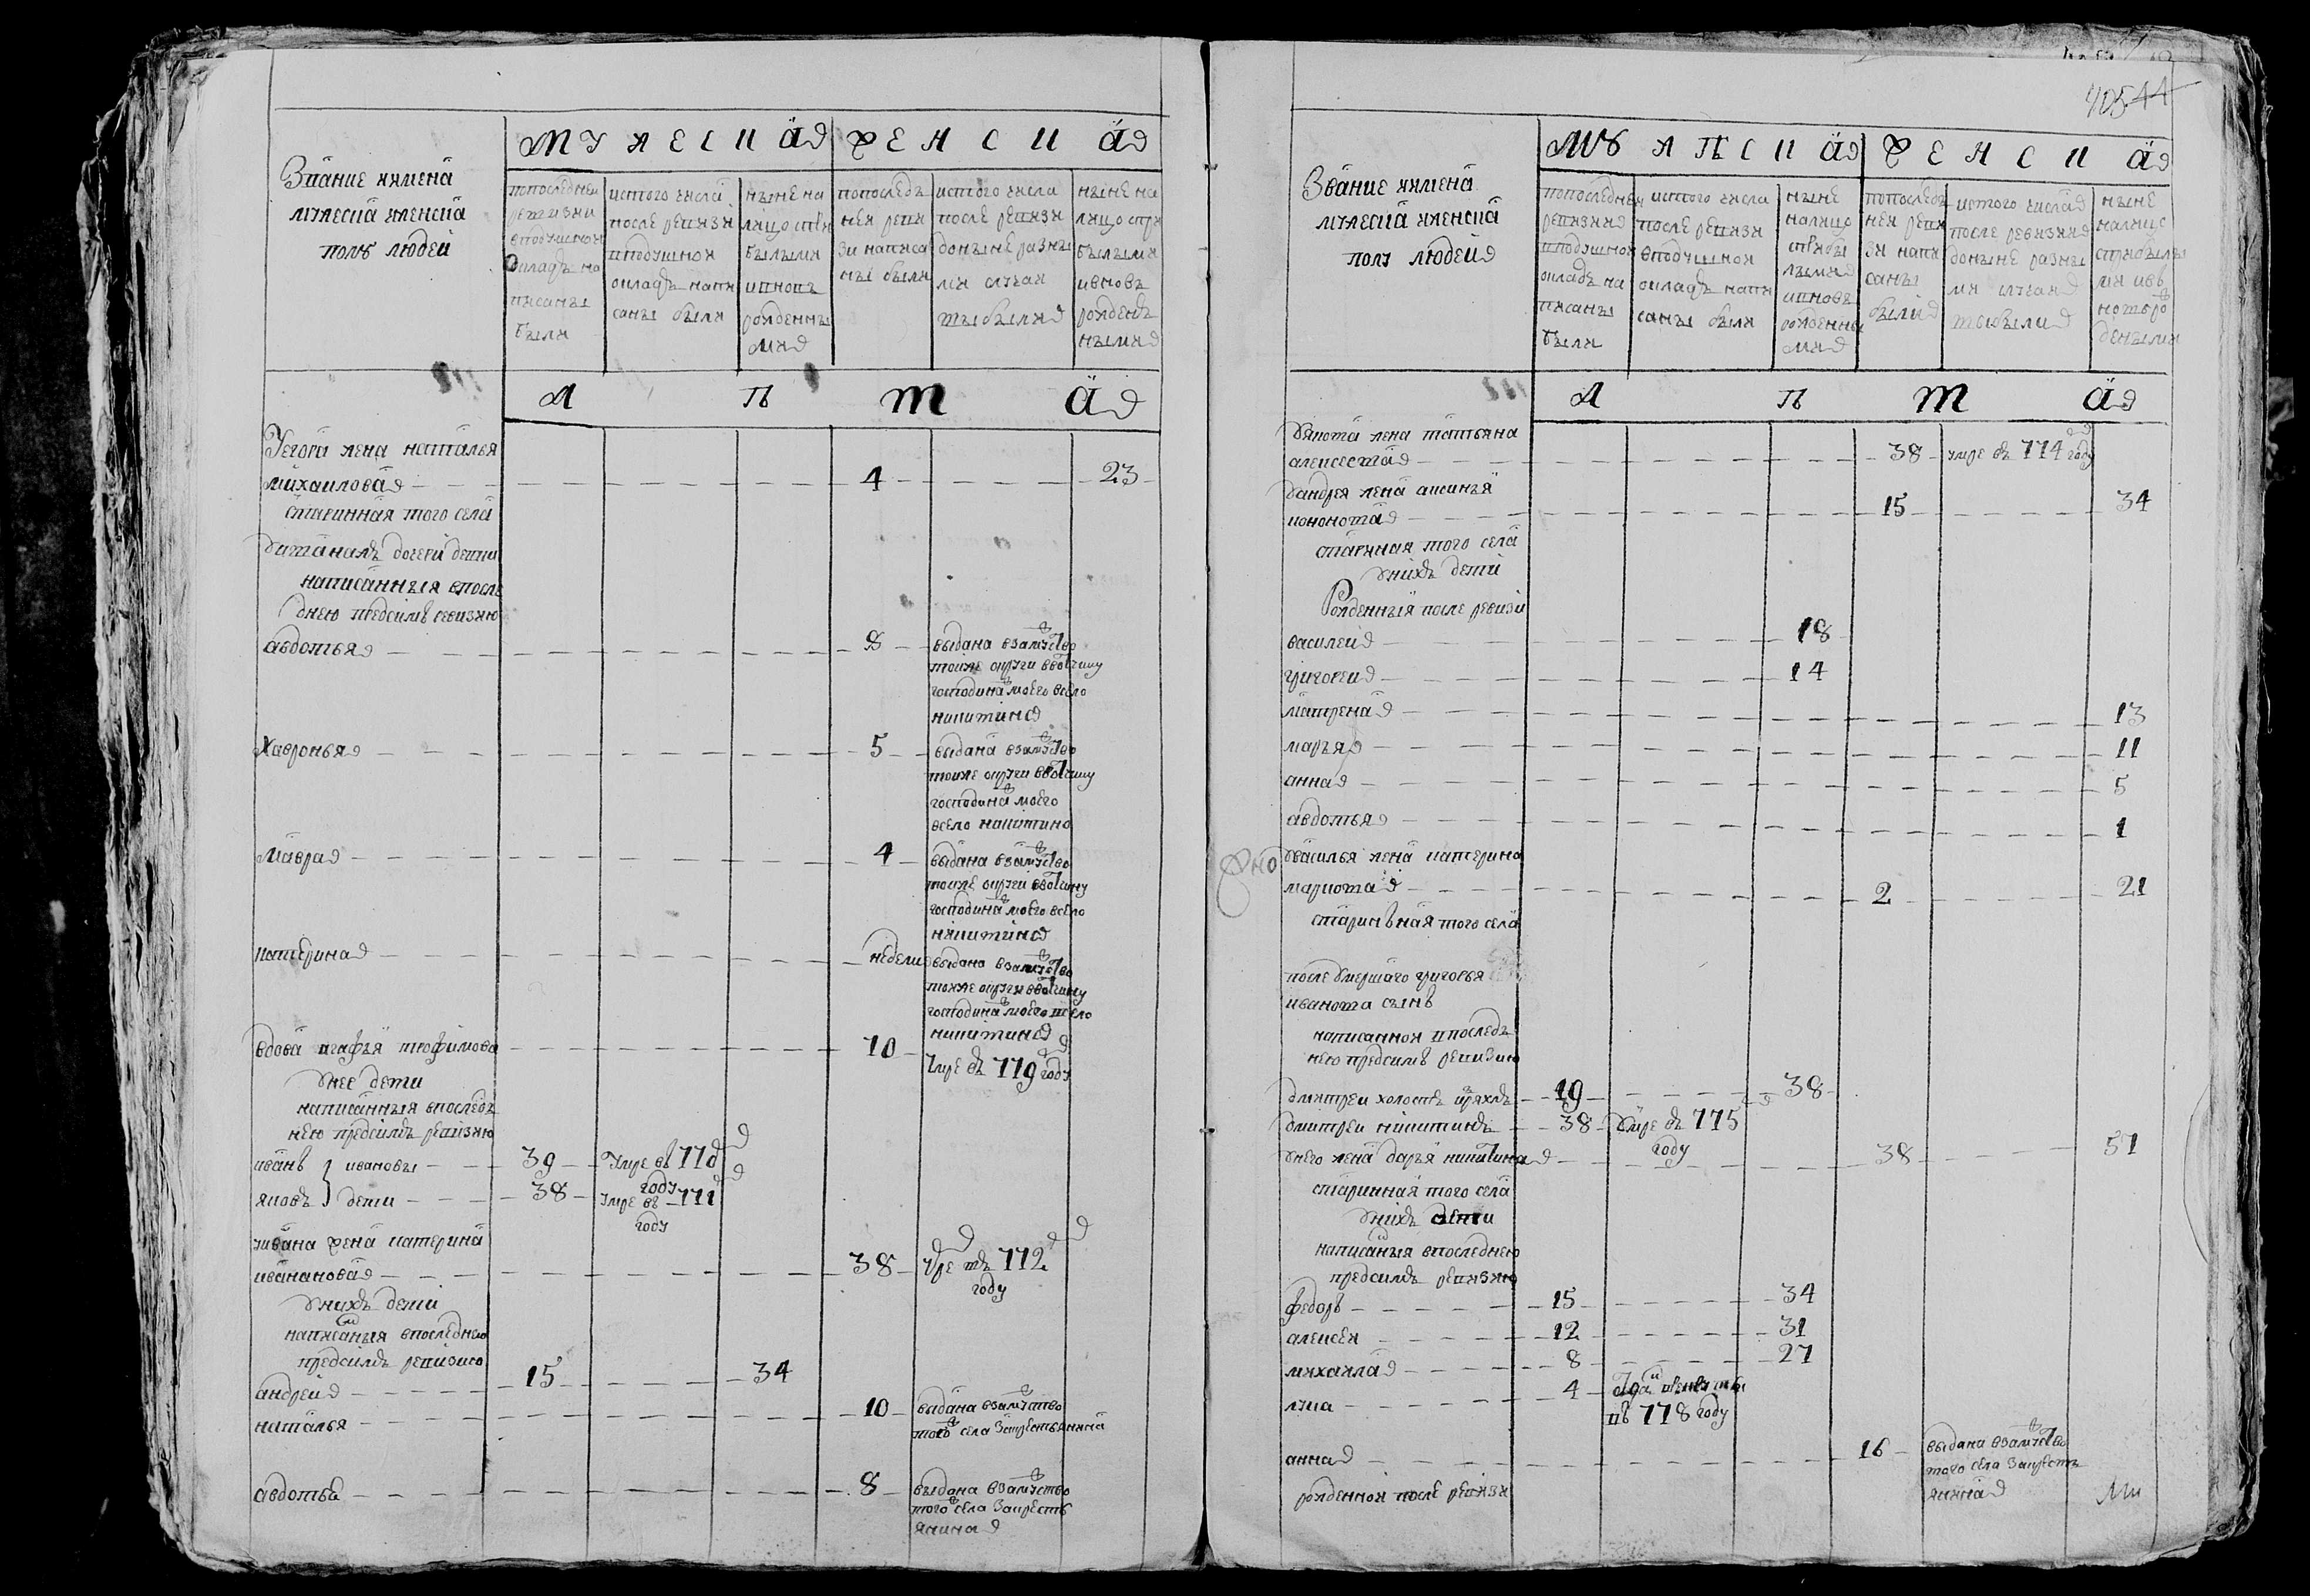 Звание имена
мужеска иженска
полу людей
мужеска
женска
попоследней
ревизии
вподушной
окладъ на
писаны
были
истого числа
после ревизи
вподушной
окладъ напи
саны были
ныне на
лицо спри
былыми
ивновь
рожденны
ми
попоследъ
ней реви
зи написа
ны были
истого числа
после ревизи
доныне разны
ми случаи
выбыли
ныне на
лицо спри
былыми
ивновь
рожденъ
ными
лета
Уегора жена наталья
михаилова 4 23
старинная того села
дети
написанныя впосле
днею предсимъ ревизию
авдотья 8 выдана взамужство
тойже округи ввотчину
господина моего всело
никитино
Хавронья 5 выдана взамужство
тойже округи ввотчину
господина моего
всело никитино
мавра 4 выдана взамужство
тойже округи ввотчину
господина моего всело
никитино
катерина недели выдана взамужство
тойже округи ввотчину
господина моего всело
никитино
вдова агафья трофимова 70
умре въ 779 году
унее дети
написанныя впоследъ
нею предсимъ ревизию
иванъ ивановы 39 умре въ 770
году
яковъ дети 38 умре въ 771
году
уивана жена катерина
ивананова 38 умре въ 772
году
унихъ дети
написаныя впоследнею
предсимъ ревизию
андрей 15 34
наталья 10 выдана взамужство
того села закрестьянина
авдотья 8 выдана взамужство
того села закресть
янина
40544
Звание имена
мужеска иженска
полу людей
мужеска
женска
попоследней
ревизии
вподушной
окладъ на
писаны
были
истого числа
после ревизи
вподушной
окладъ напи
саны были
ныне
налицо
сприбы
лыми
ивновь
рожденны
ми
попоследъ
ней реви
зи напи
саны
были
истого числа
после ревизии
доныне разны
ми случаи
выбыли
ныне
налицо
сприбылы
ми ивъ
новь ро
ждеными
лета
Уякова жена татьяна
алексеева 38 умре въ 774 году
Уандрея жена аксинья
кононова 15 34
старинная того села
унихъ дети
Рожденныя после ревизи
василей 18
григорей 14
матрена 13
марья 11
анна 5
авдотья 1
Увасилья жена катерина
маркова 2 21
старинъная того села
после умершаго григорья
иванова сынъ
написанной впоследъ
нею предсимъ ревизию
дмитреи холостъ 19 38
дмитреи никитинъ 38 умре въ 775
году
унего жена дарья никитина 38 57
старинная того села
унихъ дети
написаныя впоследнею
предсимъ ревизию
федоръ 15 34
алексей 12 31
михаила 8 27
лука 4
въ 778 году
анна 16 выдана взамужство
того села закресть
янина
рожденной после ревизи